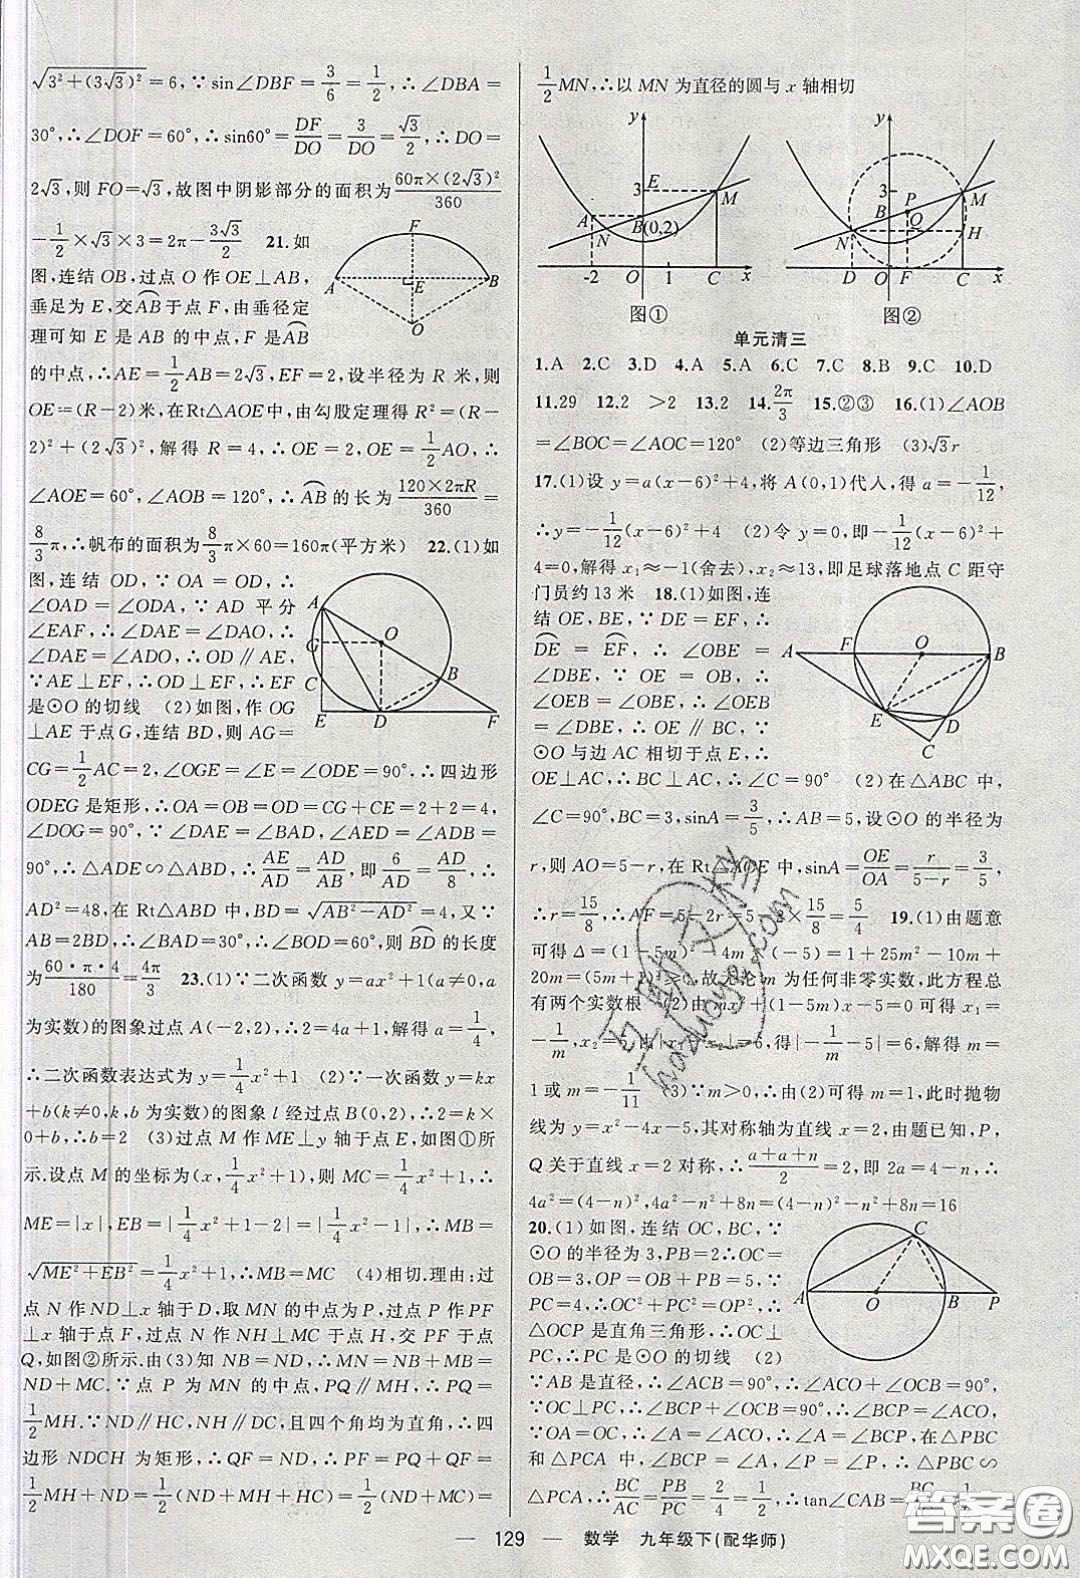 √(3²+(3√3)²)=6,∵sin∠DBF=3/6=1/2,∴∠DBA=
30°,∴∠DOF=60°,∴sin60°=DF/DO=3/DO=√3/2,∴DO=
2√3,则FO=√3,故图中阴影部分的面积为60π×(2√3)²/360
-1/2×√3×3=2π-3√3/2 21.如
图,连结OB,过点O作OE⊥AB,
垂足为E,交AB于点F,由垂径定
理可知E是AB的中点,F是AB
的中点,∴AE=1/2AB=2√3,EF=2,设半径为R米,则
OE=(R-2)米,在Rt△AOE中,由勾股定理得R²=(R-
2)²+(2√3)²,解得R=4,∴OE=2,OE=1/2AO,∴
∠AOE=60°,∠AOB=120°,∴AB的长为120×2πR/360=
8/3π,∴帆布的面积为8/3π×60=160π(平方米) 22.(1)如
图,连结OD,∵OA=OD,∴
∠OAD=∠ODA,∵AD平分
∠EAF,∴∠DAE=∠DAO,∴
∠DAE=∠ADO,∴OD∥AE,
∵AE⊥EF,∴OD⊥EF,∴EF
是⊙O的切线 (2)如图,作OG
⊥AE于点G,连结BD,则AG=
CG=1/2AC=2,∠OGE=∠E=∠ODE=90°,∴四边形
ODEG是矩形,∴OA=OB=OD=CG+CE=2+2=4,
∠DOG=90°,∵∠DAE=∠BAD,∠AED=∠ADB=
90°,∴△ADE∽△ABD,∴AE/AD=AD/AB,即6/AD=AD/8,∴
AD²=48,在Rt△ABD中,BD=√(AB²-AD²)=4,又∵
AB=2BD,∴∠BAD=30°,∴∠BOD=60°,则BD的长度
为60·π·4/180=4π/3 23.(1)∵二次函数y=ax²+1(a≠0,a
为实数)的图象过点A(-2,2),∴2=4a+1,解得a=1/4,
∴二次函数表达式为y=1/4x²+1 (2)∵一次函数y=kx
+b(k≠0,k,b为实数)的图象l经过点B(0,2),∴2=k×
0+b,∴b=2 (3)过点M作ME⊥y轴于点E,如图①所
示.设点M的坐标为(x,1/4x²+1),则MC=1/4x²+1,∴
ME=|x|,EB=|1/4x²+1-2|=|1/4x²-1|,∴MB=
√(ME²+EB²)=1/4x²+1,∴MB=MC (4)相切.理由:过
点N作ND⊥x轴于D,取MN的中点为P,过点P作PF
⊥x轴于点F,过点N作NH⊥MC于点H,交PF于点
Q,如图②所示.由(3)知NB=ND,∴MN=NB+MB=
ND+MC.∵点P为MN的中点,PQ∥MH,∴PQ=
1/2MH.∵ND∥HC,NH∥DC,且四个角均为直角,∴四
边形NDCH为矩形,∴QF=ND,∴PF=PQ+QF=
1/2MH+ND=1/2(ND+MH+HC)=1/2(ND+MC)=
1/2MN,∴以MN为直径的圆与x轴相切
图① 图②
单元清三
1.A 2.C 3.D 4.A 5.A 6.C 7.C 8.B 9.C 10.D
11.29 12.2 >2 13.2 14.2π/3 15.②③ 16.(1)∠AOB
=∠BOC=∠AOC=120° (2)等边三角形 (3)√3r
17.(1)设y=a(x-6)²+4,将A(0,1)代人,得a=-1/12,
∴y=-1/12(x-6)²+4 (2)令y=0,即-1/12(x-6)²+
4=0,解得x₁≈-1(舍去),x₂≈13,即足球落地点C距守
门员约13米 18.(1)如图,连
结OE,BE,∵DE=EF,∴
DE=EF,∴∠OBE=
∠DBE,∵OE=OB,∴
∠OEB=∠OBE,∴∠OEB
=∠DBE,∴OE∥BC,∵
⊙O与边AC相切于点E,∴
OE⊥AC,∴BC⊥AC,∴∠C=90° (2)在△ABC中,
∠C=90°,BC=3,sinA=3/5,∴AB=5,设⊙O的半径为
r,则AO=5-r,在Rt△AOE中,sinA=OE/OA=r/(5-r)=3/5,
∴r=15/8,∴AF=5-2r=5-2×15/8=5/4 19.(1)由题意
可得Δ=(1-5m)²-4m×(-5)=1+25m²-10m+
20m=(5m+1)²≥0,故无论m为任何非零实数,此方程总
有两个实数根 (2)由mx²+(1-5m)x-5=0可得x₁=
-1/m,x₂=5,由|x₁-x₂|=6,得|-1/m-5|=6,解得m=
1或m=-1/11 (3)∵m>0,∴由(2)可得m=1,此时抛物
线为y=x²-4x-5,其对称轴为直线x=2,由题已知,P,
Q关于直线x=2对称,∴(a+a+n)/2=2,即2a=4-n,∴
4a²=(4-n)²,4a²-n²+8n=(4-n)²-n²+8n=16
20.(1)如图,连结OC,BC,∵
⊙O的半径为3,PB=2∴OC=
OB=3,OP=OB+PB=5,∵
PC=4,∴OC²+PC²=OP²,∴
△OCP是直角三角形,∴OC⊥
PC,∴PC是⊙O的切线 (2)
∵AB是直径,∴∠ACB=90°,∴∠ACO+∠OCB=
90°,∵OC⊥PC,∴∠BCP+∠OCB=90°,∴∠BCP=∠ACO,
∵OA=OC,∴∠A=∠ACO,∴∠A=∠BCP,在△PBC
和△PCA中,∠BCP=∠A,∠P=∠P,∴△PBC∽
△PCA,∴BC/AC=PB/PC=2/4=1/2,∴tan∠CAB=BC/AC
— 129 — 数学 九年级下(配华师)
答案圈
MXQE.COM